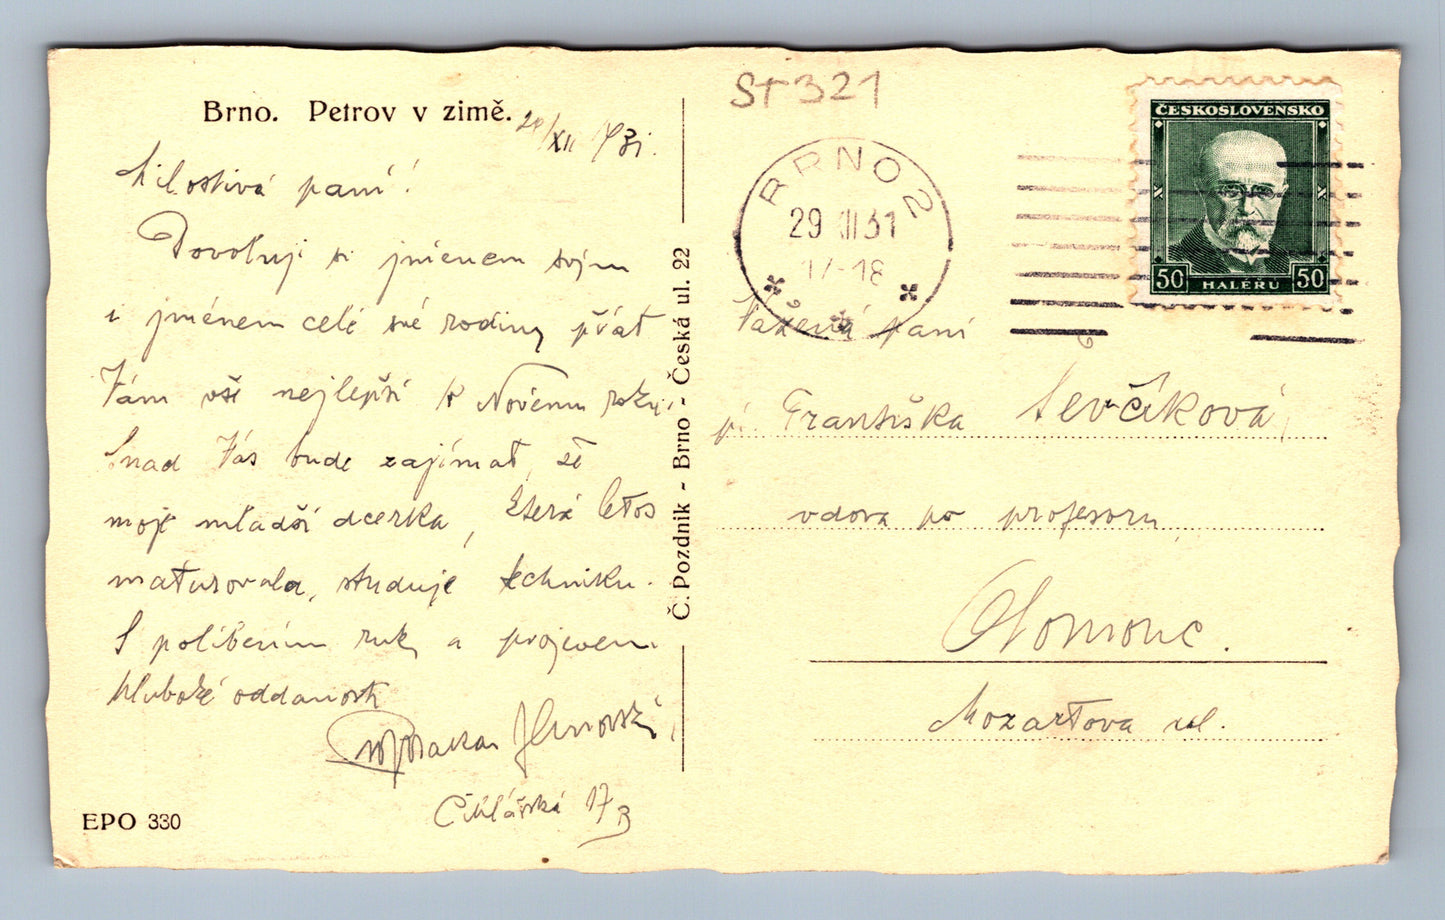 Brno. Petrov v zimě.
29/XII 1931.
Milostivá paní!
Dovoluji si jménem svým
i jménem celé své rodiny přát
Vám vše nejlepší k Novému roku.
Snad Vás bude zajímat, že
moje mladší dcerka, která letos
maturovala, studuje techniku.
S políbením ruky a projevem
hluboké oddanosti
Cihlářská 17
EPO 330
Č. Pozdnik - Brno - Česká ul. 22
ST 321
BRNO 2
29 XII 31
17-18
ČESKOSLOVENSKO
50 HALÉRU 50
Vážená paní
pí. Františka Ševčíková,
vdova po profesoru,
Olomouc.
Mozartova ul.